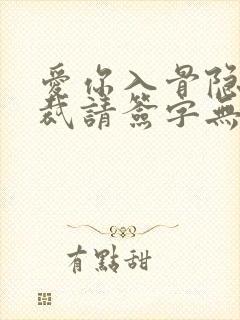 愛你入骨隐
裁請簽字無
有點甜